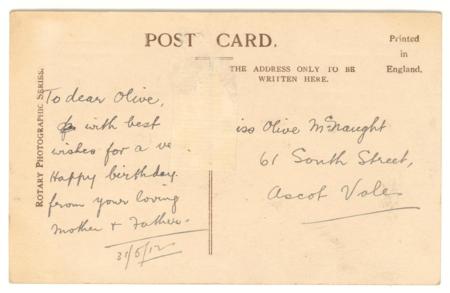 POST CARD.
Printed
in
England.
THE ADDRESS ONLY TO BE
WRITTEN HERE.
ROTARY PHOTOGRAPHIC SERIES.
To dear Olive,
with best
wishes for a ve
Happy birthday.
from your loving
Mother & Father.
31/5/12
iss Olive McNaught
61 South Street,
Ascot Vale